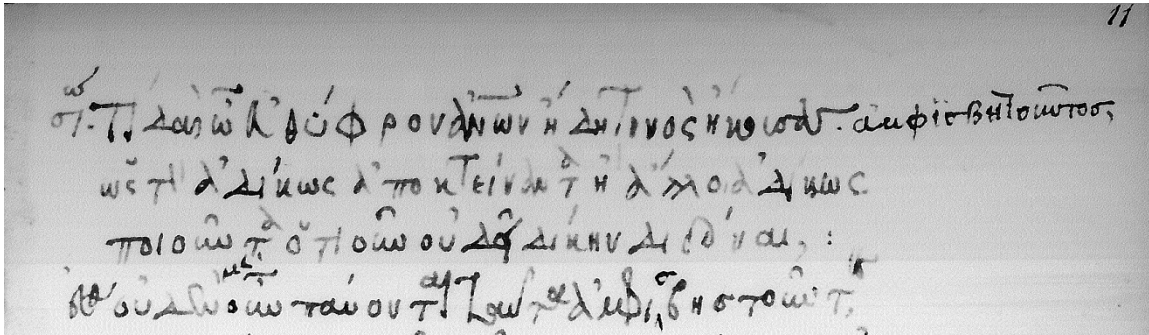 σω. Τί δαὶ ὦ ἐυθύφρον ἀνῶν ἤδη τινὸς ἤκουσας. ἀμφϊσβητοῦντοσ,
ὡς τὸν ἀδίκως ἀποκτείναντα ἢ ἄλλο ἀδίκως
ποιοῦντα ὁτιοῦν οὐ δεῖ δίκην διδόναι, :
ευθ οὐδὲν μὲν οὖν παύονται ταῦτα ἀμφισβητοῦντες